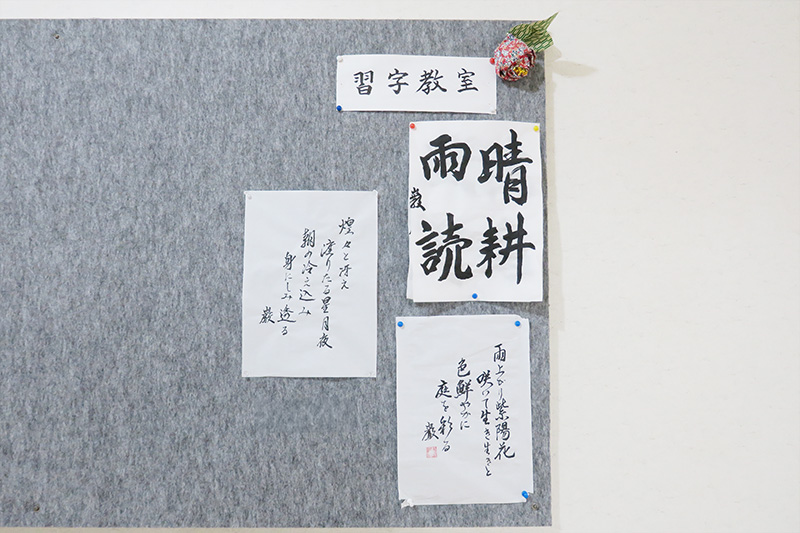 習字教室
晴耕
雨読
巌
煌々と冴え
渡りたる星月夜
朝の冷え込み
身にしみ透る
巌
雨上がり紫陽花
咲いて生き生きと
色鮮やかに
庭を彩る
巌